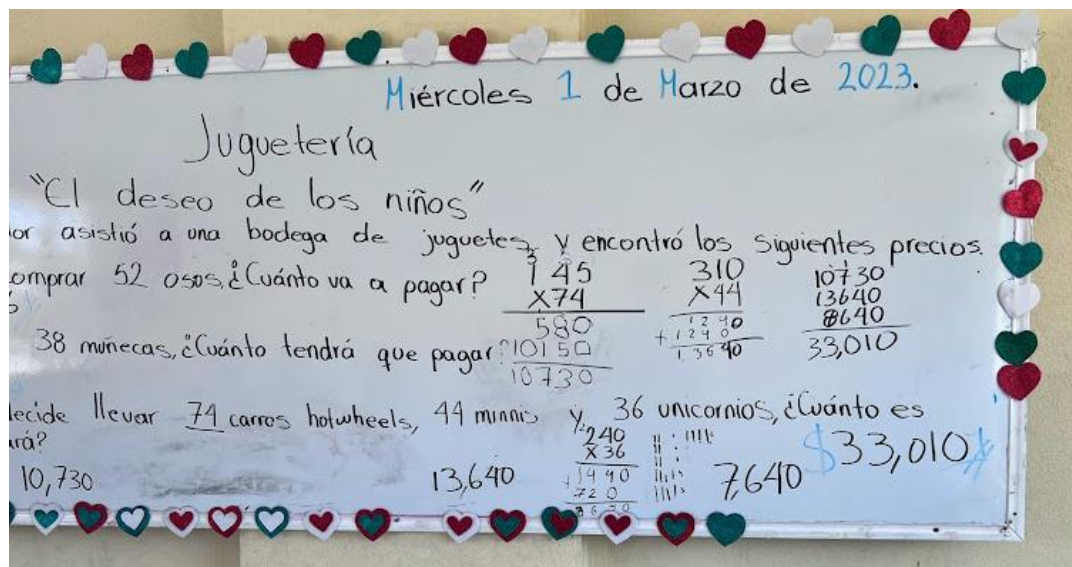 Miércoles 1 de Marzo de 2023.
Juguetería
"El deseo de los niños"
or asistió a una bodega de juguetes y encontró los siguientes precios.
omprar 52 osos, ¿Cuánto va a pagar?
38 munecas, ¿Cuánto tendrá que pagar?
145
X74
580
10150
10730
310
X44
1240
+1240
13640
10730
13640
8640
33,010
lecide llevar 74 carros hotwheels, 44 minnis y 36 unicornios, ¿Cuánto es
rá?
10,730
13,640
240
X36
1440
+720
8640
7,640
$33,010